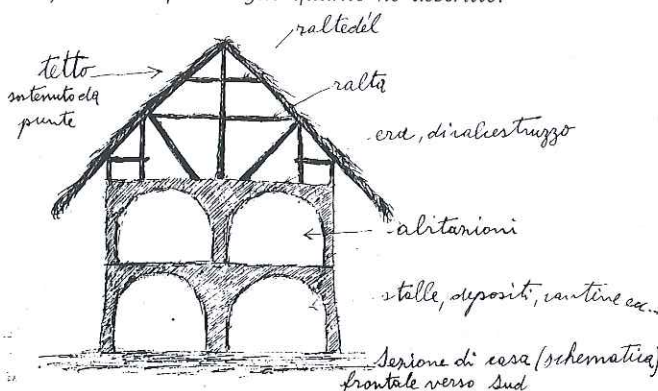 quanto ho descritto.
raltedél
tetto
sostenuto da
punte
ralta
era, di calcestruzzo
abitazioni
stalle, depositi, cantine ecc...
Sezione di casa (schematica)
frontale verso Sud